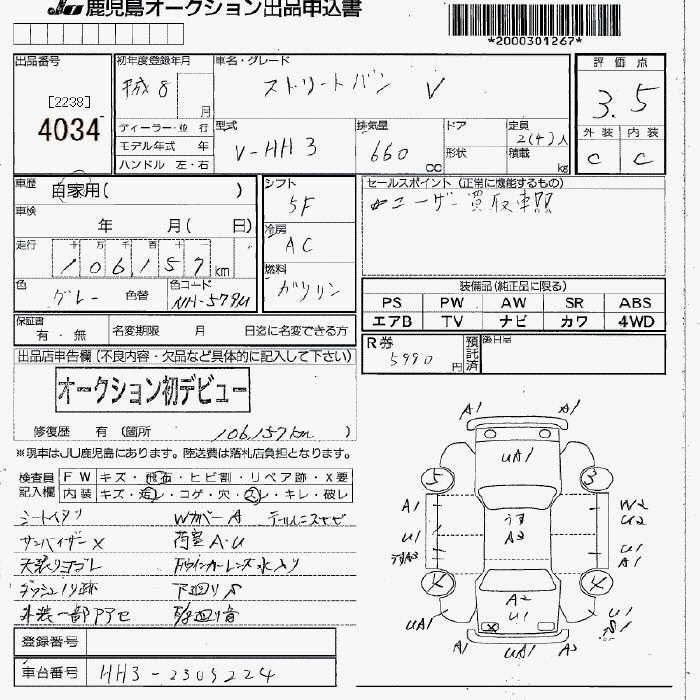 JU 鹿児島オークション出品申込書
*2000301267*
出品番号
[2238]
4034
初年度登録年月
平成 8
月
車名・グレード
ストリートバン V
評価点
3.5
外装 内装
C C
ディーラー・並行
モデル年式 年
ハンドル 左・右
型式
V-HH3
排気量
660
CC
ドア
形状
定員
2(4)人
積載
kg
車歴
自家用( )
車検
年 月( 日)
走行
十 万 千 百 十
106,157 km
色
グレー
色替
色コード
NH-579M
シフト
5F
冷房
AC
燃料
ガソリン
セールスポイント (正常に機能するもの)
ユーザー買取車両
装備品(純正品に限る)
PS PW AW SR ABS
エアB TV ナビ カワ 4WD
保証書
有・無
名変期限 月 日迄に名変できる方
R券
5990
円
預託済
後日品
出品店申告欄(不良内容・欠品など具体的に記入して下さい)
オークション初デビュー
修復歴 有 (箇所 106,157km )
※現車はJU鹿児島にあります。陸送費は落札店負担となります。
検査員記入欄
FW キズ・飛石・ヒビ割・リペア跡・X要
内装 キズ・汚レ・コゲ・穴・スレ・キレ・破レ
シートイタソ Wカバー A テールレンズサビ
サンバイザー X 荷室 A・U
天張りヨゴレ Fウインカーレンズ水入り
ダッシュノリ跡 下廻りS
外装一部アセ
登録番号
車台番号
HH3-2305224
A1 A1
UA1
5 3
A1 W2
U2
うす
A2
U1 U1
うすA3 A1
4 4
A2
U1
X
UA1 U1
S1
A1 UA1 A3